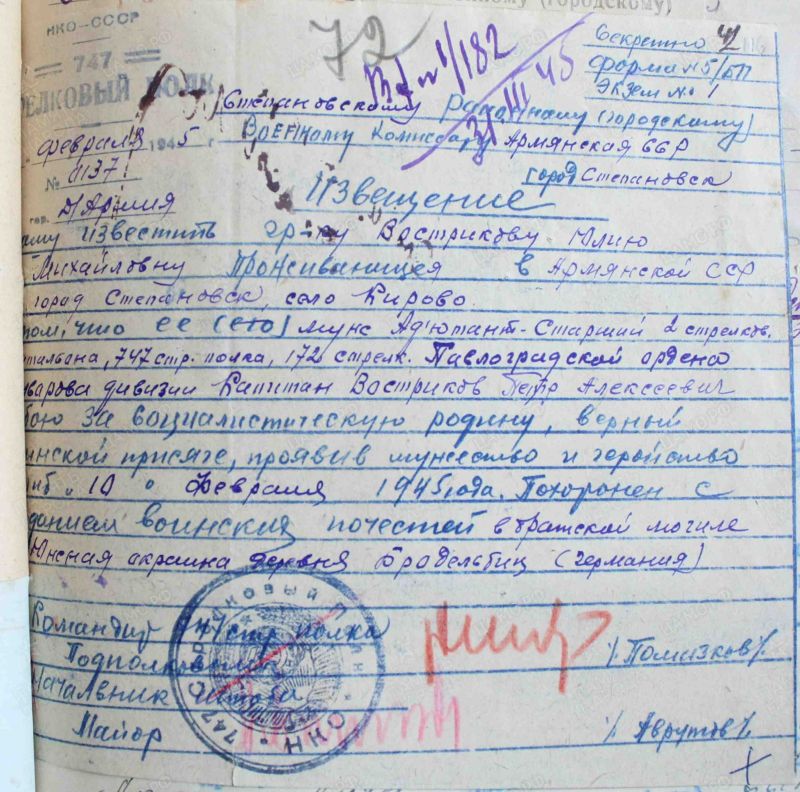 НКО-СССР
747
РЕЛКОВЫЙ ПОЛК
февраля 1945 г
№ 1137
Д/Армия
72
Вх № 1/182
31/III 45
Секретно 42
форма №5/БП
Экзем № 1
Степановскому районному (городскому)
Военному Комиссару Армянская ССР
город Степановск
Извещение
ому известить гр-ку Вострикову Юлию
Михайловну Проживающея в Армянской ССР
город Степановск, село Кирово.
том, что ее (его) муж Адютант-Старший 2 стрелков.
тальона, 747 стр. полка, 172 стрелк. Павлоградской ордена
уварова дивизии Капитан Востриков Петр Алексеевич
бою за социалистическую родину, верный
инской присяге, проявив мужество и геройство
иб „10" Февраля 1945 года. Похоронен с
данием воинских почестей в братской могиле
Южная окраина деревня Брадельвиц (Германия)
Командир 747 стр полка
Подполковник /Помазков/.
Начальник Штаба
Майор /Аврутов/.